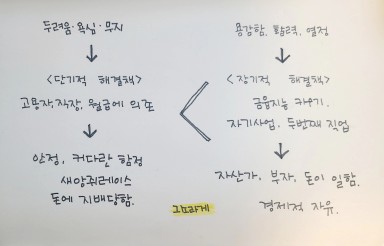 두려움·욕심·무지
<단기적 해결책>
고용자, 직장, 월급에 의존
안정, 커다란 함정
새앙쥐레이스
돈에 지배당함.
용감함, 활력, 열정
<장기적 해결책>
금융지능 키우기.
자기사업. 두번째 직업
자산가, 부자, 돈이 일함.
경제적 자유.